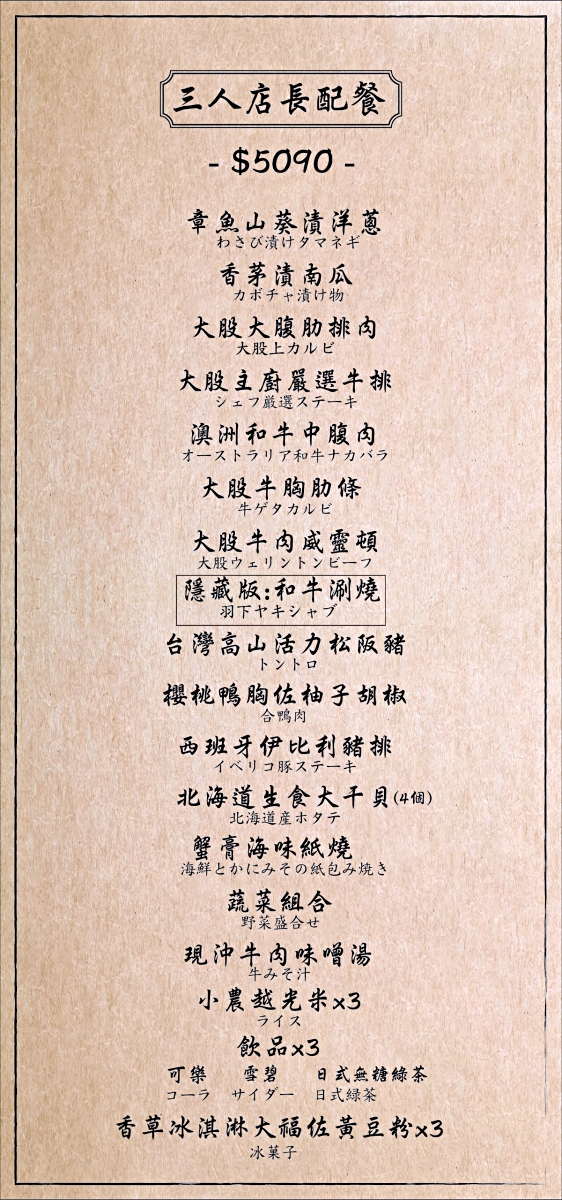 三人店長配餐
- $5090 -
章魚山葵漬洋蔥
わさび漬けタマネギ
香茅漬南瓜
カボチャ漬け物
大股大腹肋排肉
大股上カルビ
大股主廚嚴選牛排
シェフ厳選ステーキ
澳洲和牛中腹肉
オーストラリア和牛ナカバラ
大股牛胸肋條
牛ゲタカルビ
大股牛肉威靈頓
大股ウェリントンビーフ
隱藏版:和牛涮燒
羽下ヤキシャブ
台灣高山活力松阪豬
トントロ
櫻桃鴨胸佐柚子胡椒
合鴨肉
西班牙伊比利豬排
イベリコ豚ステーキ
北海道生食大干貝(4個)
北海道産ホタテ
蟹膏海味紙燒
海鮮とかにみその紙包み焼き
蔬菜組合
野菜盛合せ
現沖牛肉味噌湯
牛みそ汁
小農越光米x3
ライス
飲品x3
可樂 雪碧 日式無糖綠茶
コーラ サイダー 日式緑茶
香草冰淇淋大福佐黃豆粉x3
冰菓子